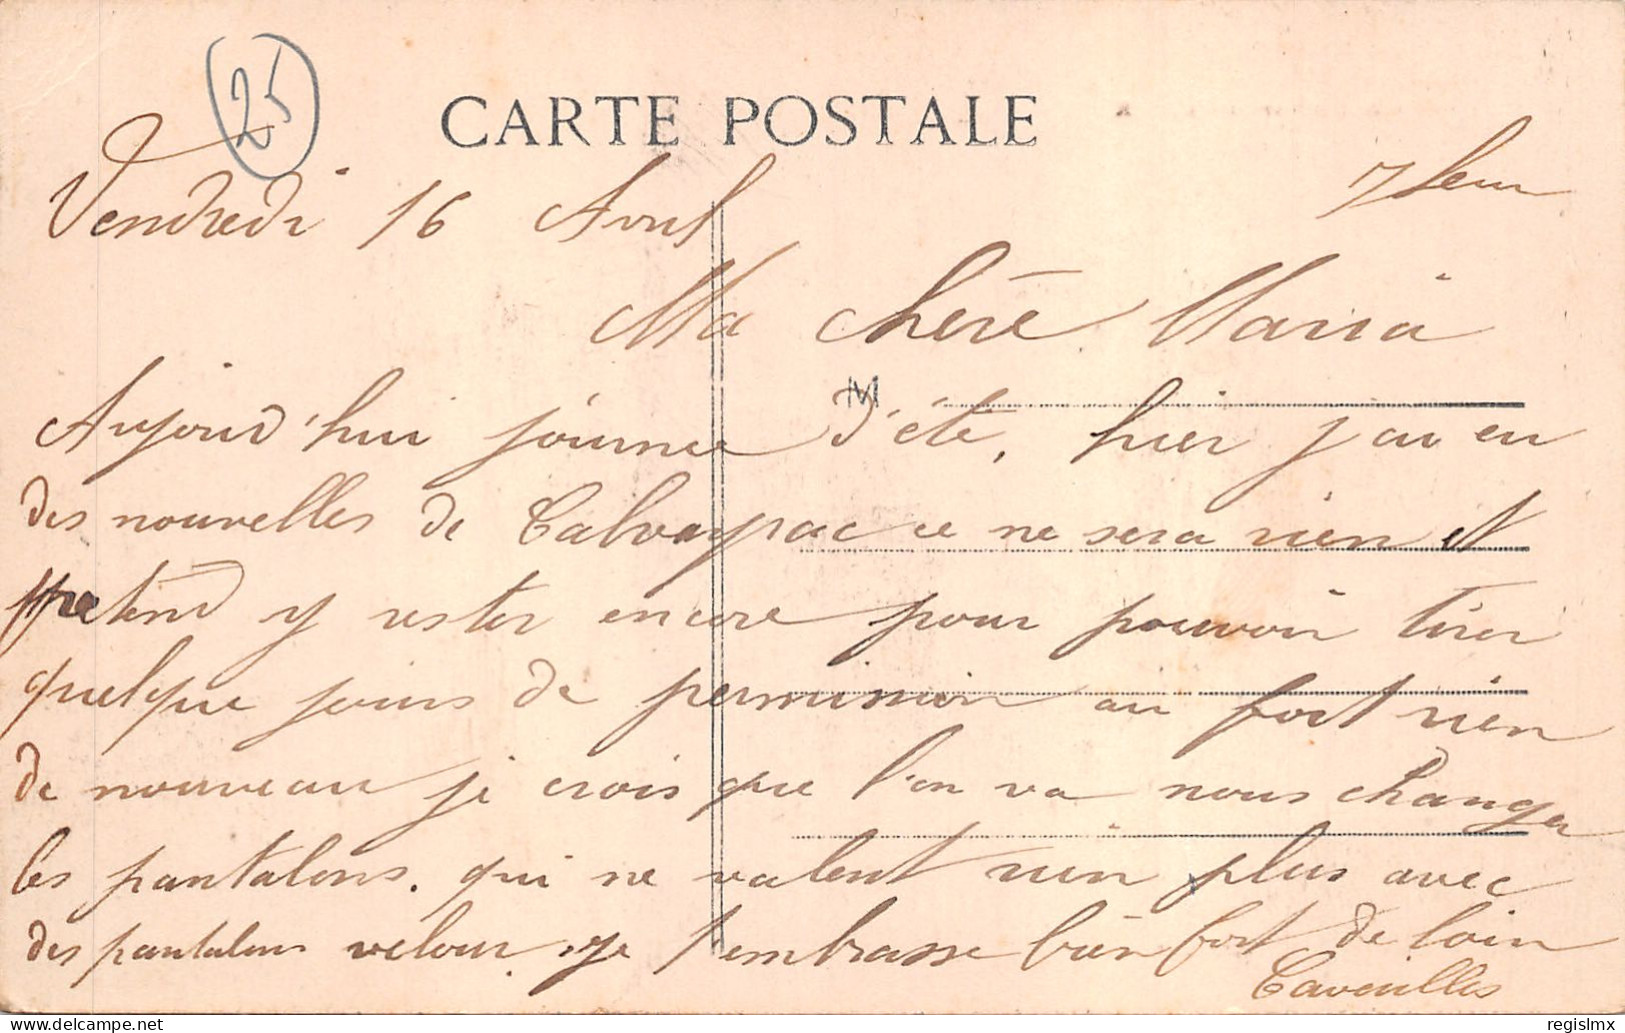 25
CARTE POSTALE
Vendredi 16 Avril
Ma chère Maria
M
Aujourd'hui journee d'été, hier j'ai eu
des nouvelles de ce ne sera rien et
pretend y rester encore pour pouvoir tirer
quelque jours de permission au fort rien
de nouveau je crois que l'on va nous changer
les pantalons. qui ne valent rien plus avec
des pantalons velour. Je t'embrasse bien fort de loin
delcampe.net
regislmx